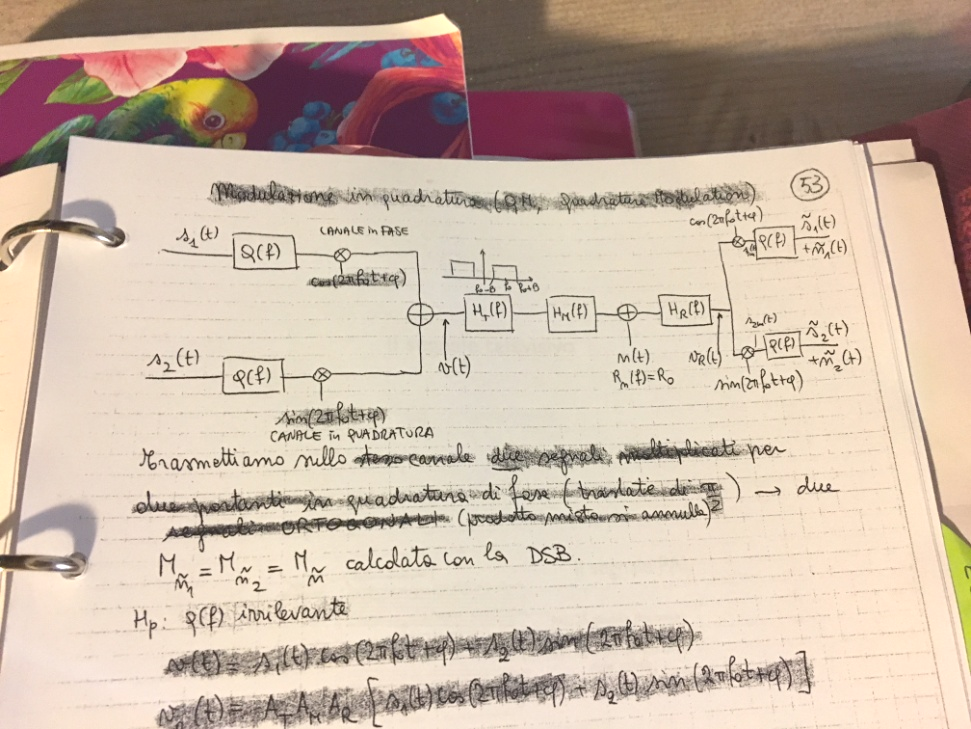 Modulazione in quadratura (QM, Quadrature Modulation)
53
s₁(t)
Q(f)
CANALE in FASE
cos(2πf₀t+φ)
f₀-B f₀ f₀+B
H_T(f)
H_M(f)
n(t)
R_n(f)=R₀
H_R(f)
v_R(t)
cos(2πf₀t+φ)
Q(f)
s̃₁(t)
+ñ₁(t)
s₂(t)
Q(f)
sin(2πf₀t+φ)
CANALE in QUADRATURA
v(t)
sin(2πf₀t+φ)
Q(f)
s̃₂(t)
+ñ₂(t)
Trasmettiamo sullo stesso canale due segnali moltiplicati per
due portanti in quadratura di fase (traslate di π/2) → due
segnali ORTOGONALI (prodotto misto si annulla)
M_ñ₁ = M_ñ₂ = M_ñ calcolata con la DSB.
Hp: Q(f) irrilevante
v(t) = s₁(t) cos(2πf₀t+φ) + s₂(t) sin(2πf₀t+φ)
v_R(t) = A_T A_M A_R [s₁(t) cos(2πf₀t+φ) + s₂(t) sin(2πf₀t+φ)]